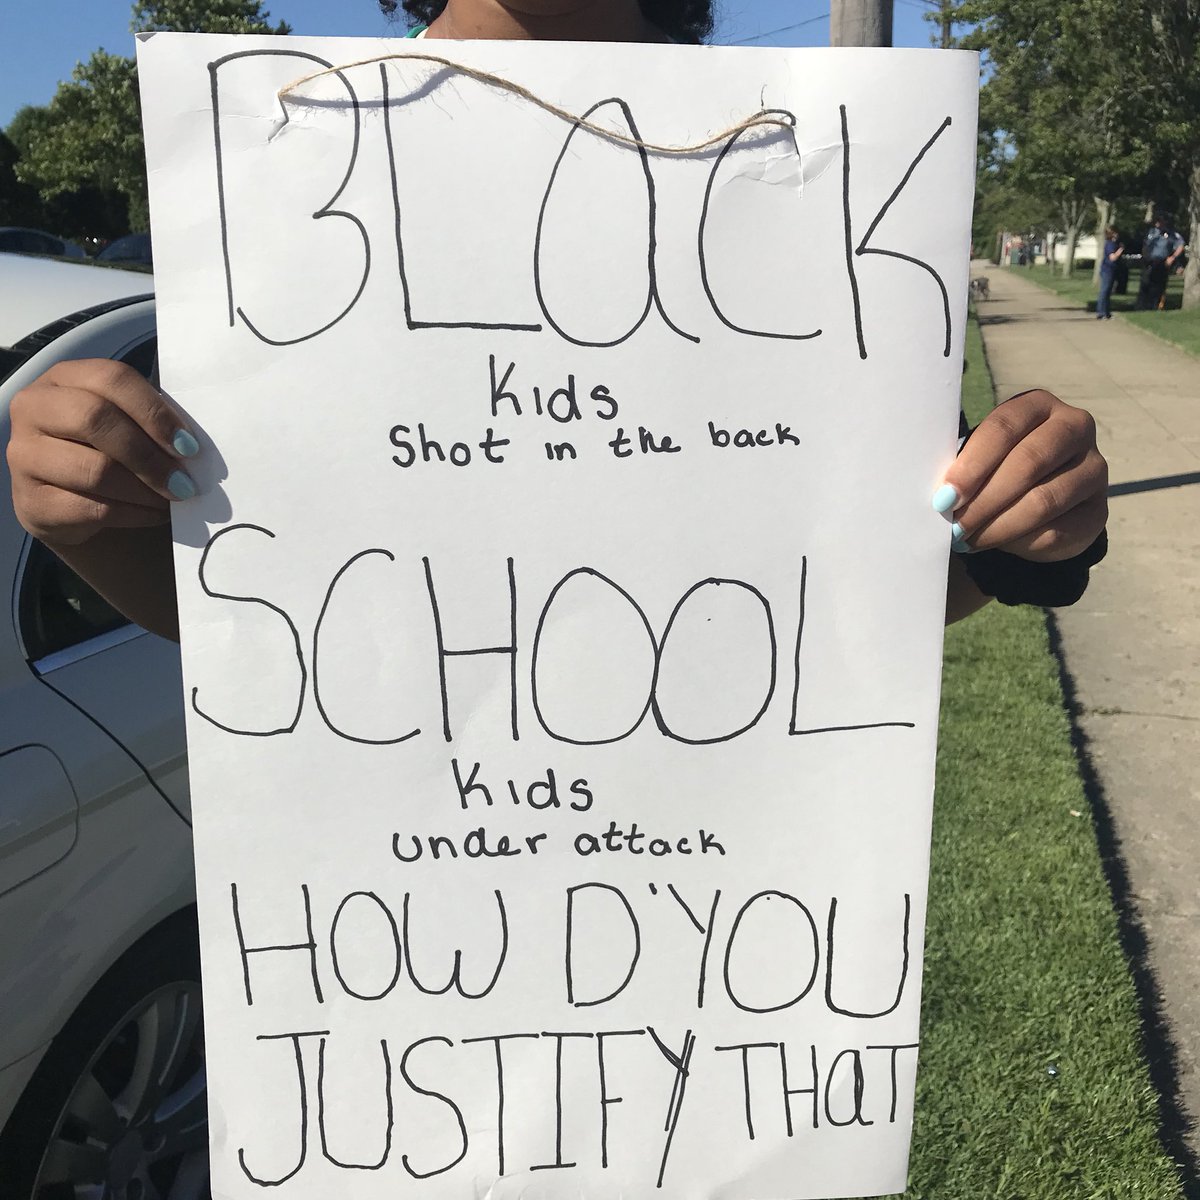 BLaCK
Kids
Shot in the back
SCHOOL
Kids
under attack
HOW D'YOU
JUSTIFY THaT